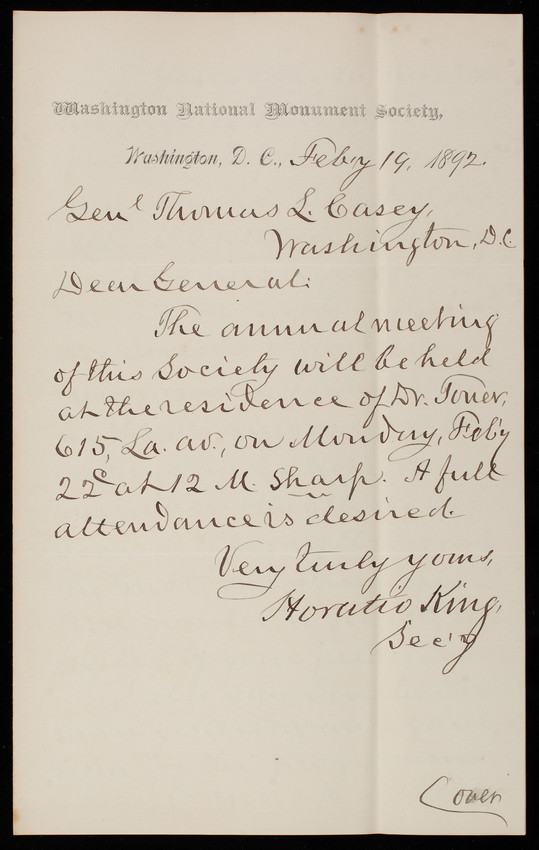 Washington National Monument Society,
Washington, D. C., Feb'y 19, 1892.
Genl Thomas L. Casey,
Washington, D.C.
Dear General:
The annual meeting
of this Society will be held
at the residence of Dr. Toner,
615, La. av., on Monday, Feb'y
22d at 12 M. sharp. A full
attendance is desired.
Very truly yours,
Horatio King,
Sec'y
(over